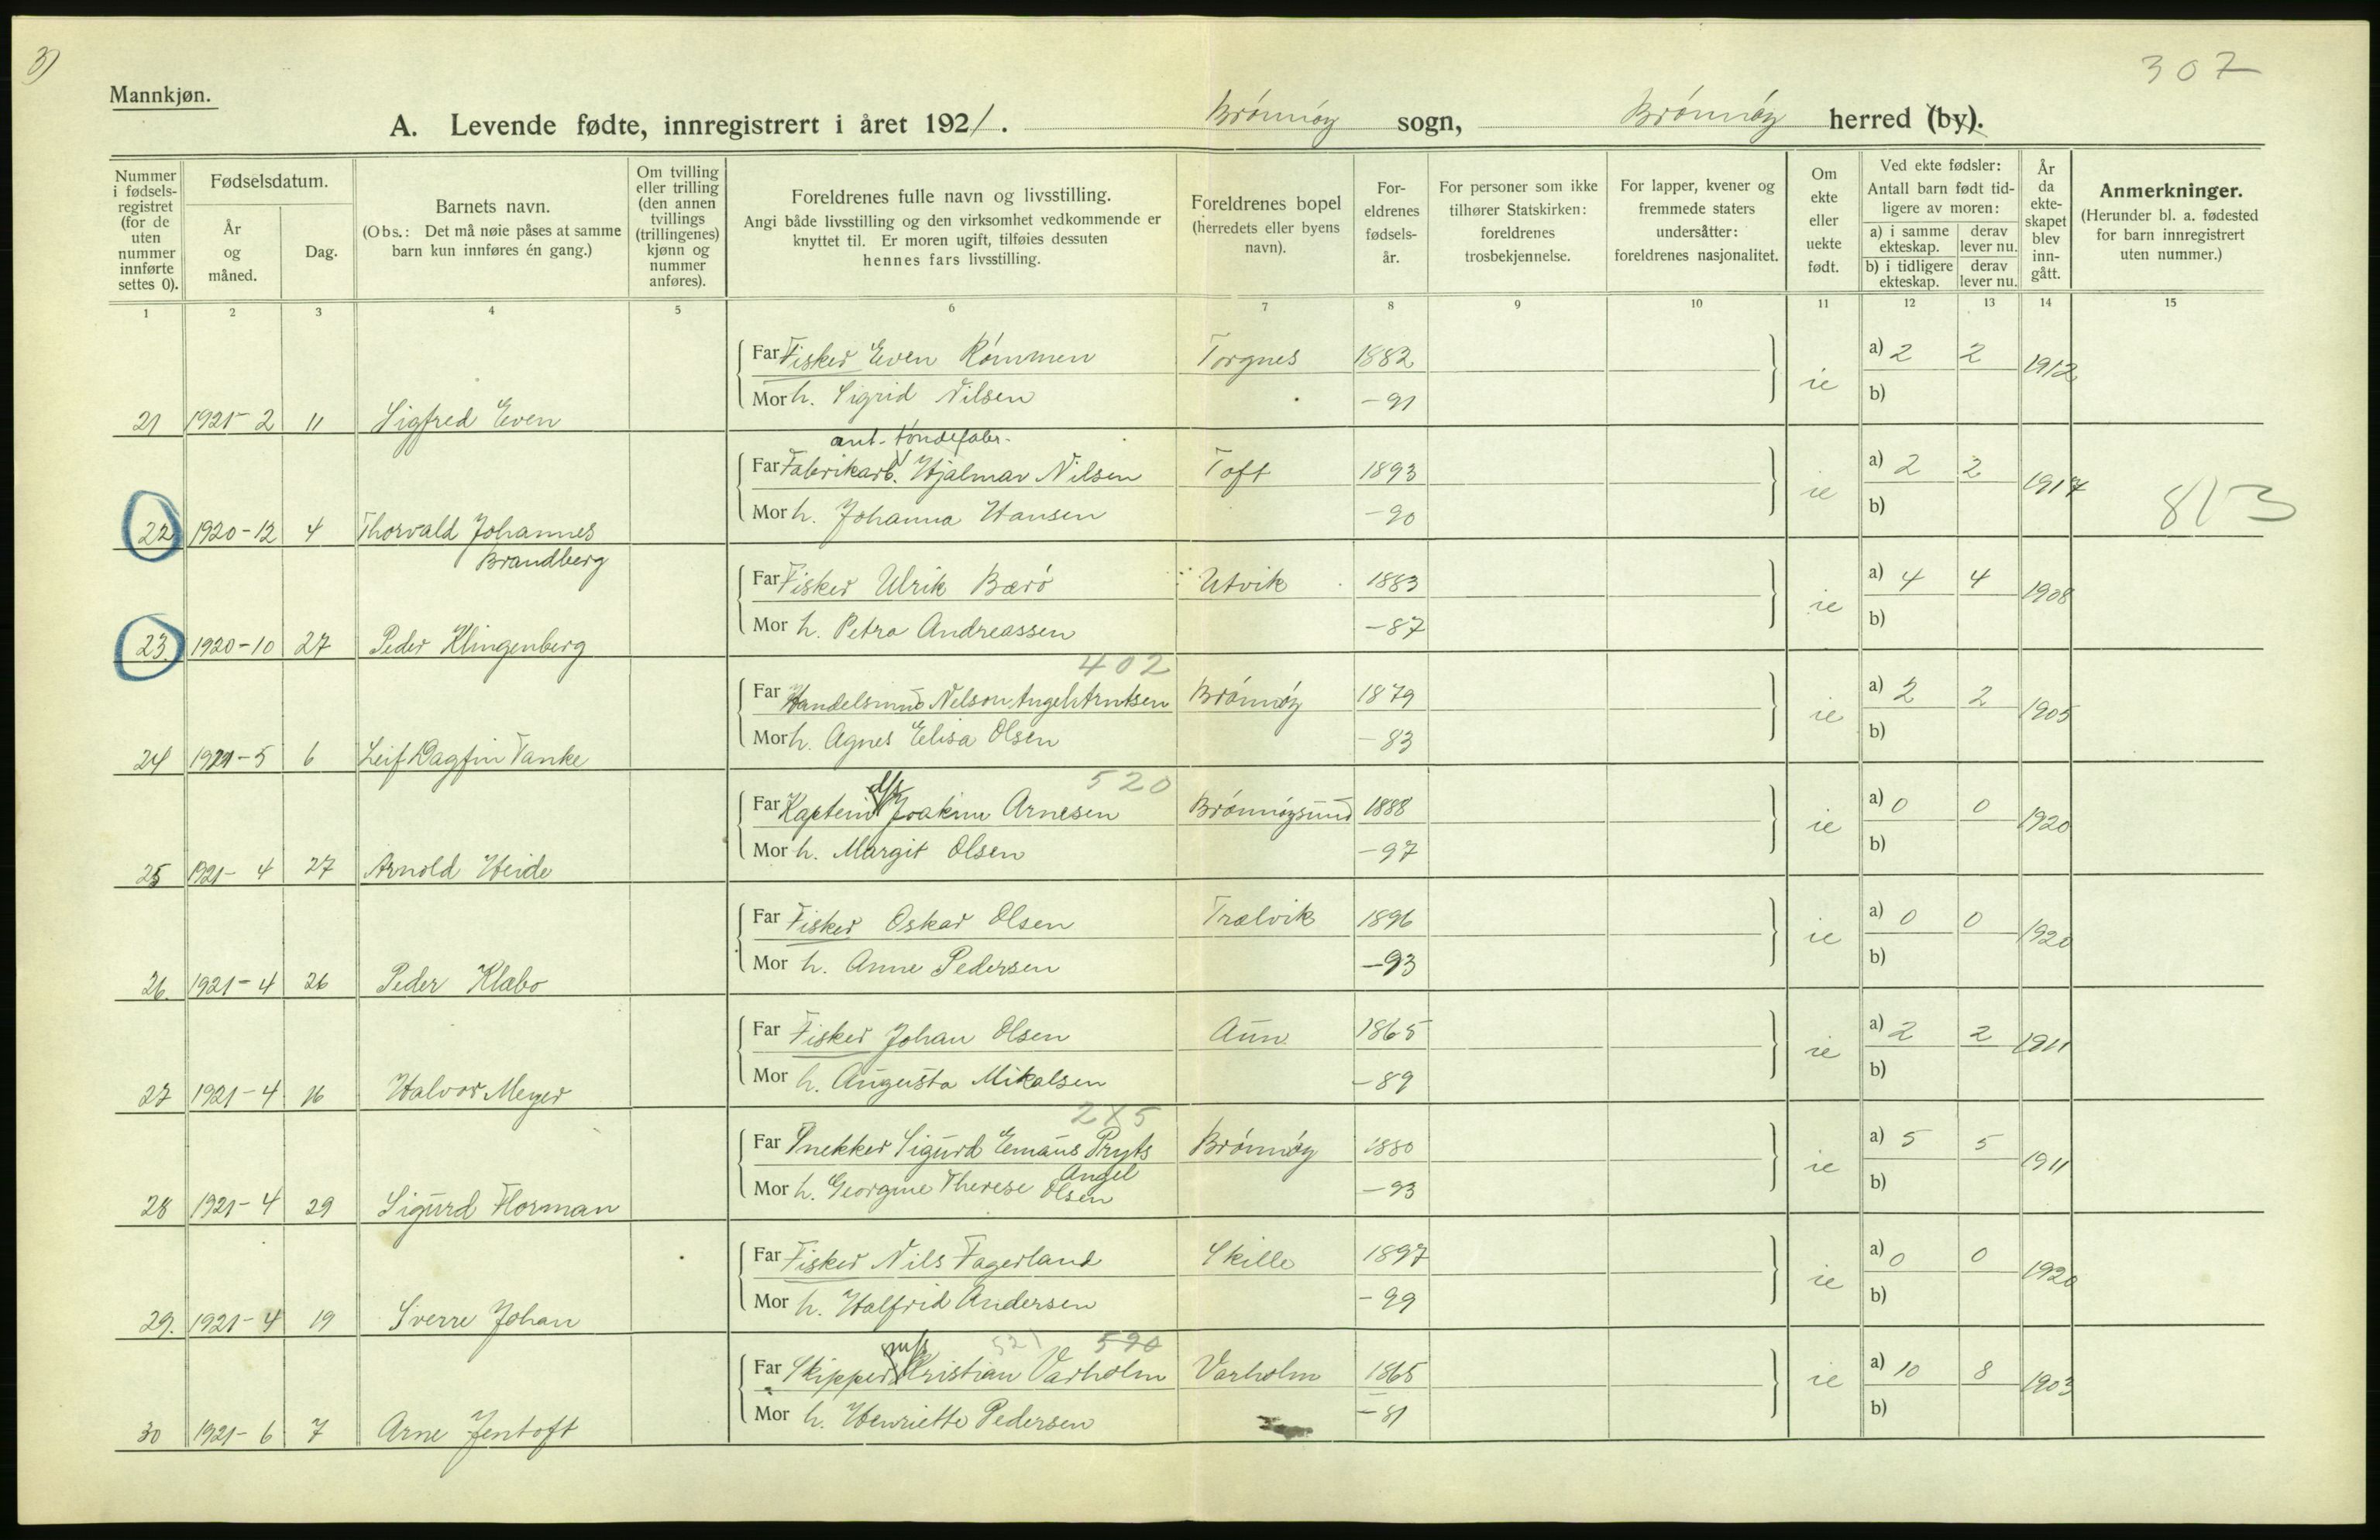 3)
307
Mannkjøn.
A. Levende fødte, innregistrert i året 1921. Brónnóy sogn, Brónnóy herred (by).
Nummer i fødsels-registret (for de uten nummer innførte settes 0).
Fødselsdatum.
År og måned.
Dag.
Barnets navn.
(Obs.: Det må nøie påses at samme barn kun innføres én gang.)
Om tvilling eller trilling (den annen tvillings (trillingenes) kjønn og nummer anføres).
Foreldrenes fulle navn og livsstilling.
Angi både livsstilling og den virksomhet vedkommende er knyttet til. Er moren ugift, tilføies dessuten hennes fars livsstilling.
Foreldrenes bopel (herredets eller byens navn).
For-eldrenes fødsels-år.
For personer som ikke tilhører Statskirken: foreldrenes trosbekjennelse.
For lapper, kvener og fremmede staters undersåtter: foreldrenes nasjonalitet.
Om ekte eller uekte født.
Ved ekte fødsler: Antall barn født tid-ligere av moren:
a) i samme ekteskap.
derav lever nu.
b) i tidligere ekteskap.
derav lever nu.
År da ekte-skapet blev inn-gått.
Anmerkninger.
(Herunder bl. a. fødested for barn innregistrert uten nummer.)
1 2 3 4 5 6 7 8 9 10 11 12 13 14 15
Far Fisker Even Rómmen Torgnes 1882 a) 2 2
Mor h. Sigrid Nilsen -91 ie b) 1912
21 1921-2 11 Sigfred Even
Far Fabrikarb. Hjalmar Nilsen Toft 1893 a) 2 2
Mor h. Johanna Hansen -90 ie b) 1917 813
22 1920-12 4 Thorvald Johannes
Brandberg
Far Fisker Ulrik Bæró Utvik 1883 a) 4 4
Mor h. Petra Andreassen -87 ie b) 1908
23. 1920-10 27 Peder Klingenberg
402
Far Handelsmnd Nelson Angel Arntsen Brónnóy 1879 a) 2 2
Mor h. Agnes Elisa Olsen -83 ie b) 1905
24 1921-5 6 Leif Dagfin Tanke
520
Far Kaptein d/s Joakim Arnesen Brónnóysund 1888 a) 0 0
Mor h. Margit Olsen -97 ie b) 1920
25 1921-4 27 Arnold Heide
Far Fisker Oskar Olsen Trælvik 1896 a) 0 0
Mor h. Anne Pedersen -93 ie b) 1920
26. 1921-4 26 Peder Klæbo
Far Fisker Johan Olsen Aun 1865 a) 2 2
Mor h. Augusta Mikalsen -89 ie b) 1911
27 1921-4 16 Halvor Meyer
Far Snekker Sigurd Emaus Pryts Brónnóy 1880 a) 5 5
Angel
Mor h. Georgine Therese Olsen -93 ie b) 1911
28 1921-4 29 Sigurd Florman
Far Fisker Nils Fagerland Skille 1897 a) 0 0
Mor h. Halfrid Andersen -99 ie b) 1920
29. 1921-4 19 Sverre Johan
521 590
Far Skipper m/s Kristian Varholm Varholm 1865 a) 10 8
Mor h. Henriette Pedersen -81 ie b) 1903
30 1921-6 7 Arne Jentoft